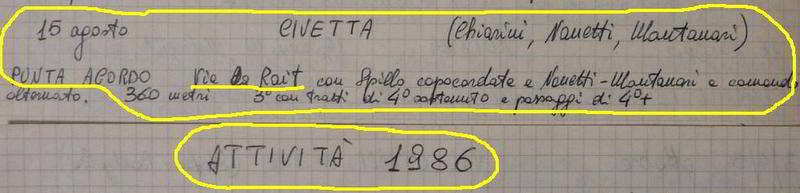 15 agosto CIVETTA (Chiarini, Nanetti, Mantanari)
PUNTA AGORDO Via Da Roit con Spillo capocordata e Nanetti-Mantanari a comando
alternato. 360 metri 3° con tratti di 4° sostenuto e passaggi di 4°+
ATTIVITÀ 1986